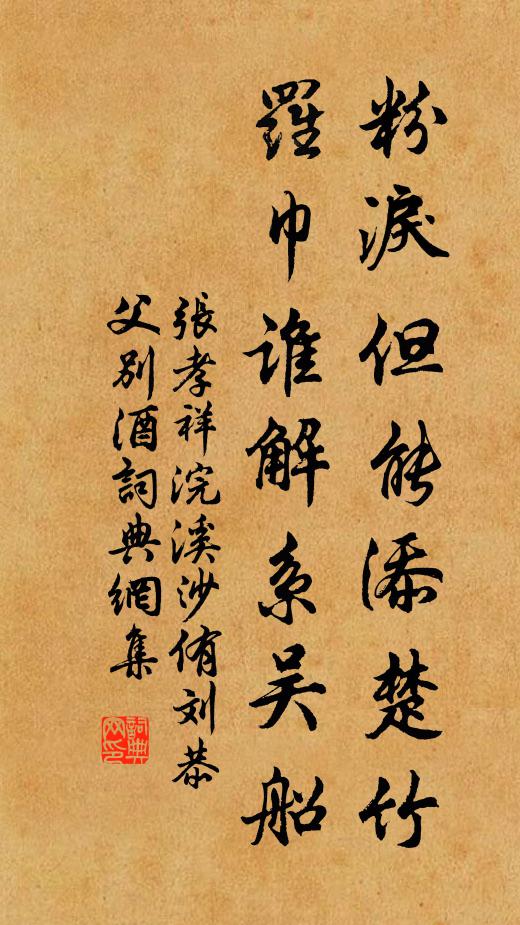 粉淚但能添楚竹
羅巾谁解系吴船
張孝祥浣溪沙侑刘恭
父别酒詞典網集
詞典
网印